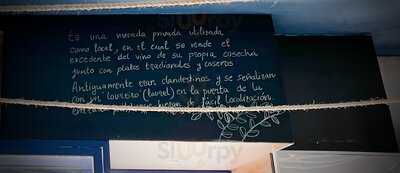 Es una morada privada utilizada
como local, en el cual se vende el
excedente del vino de su propia cosecha
junto con platos tradionales y caseros
Antiguamente eran clandestinos y se señalizan
con un loureiro (laurel) en la puerta de la
de fácil localización.
sluurpy